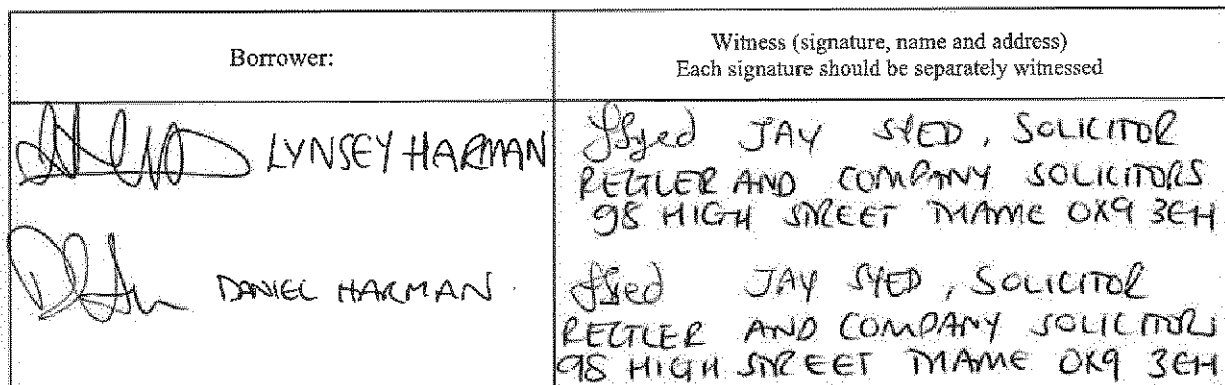 Borrower:
Witness (signature, name and address)
Each signature should be separately witnessed
LYNSEY HARMAN
JSyed JAY SYED, SOLICITOR
REITLER AND COMPANY SOLICITORS
98 HIGH STREET THAME OX9 3EH
DANIEL HARMAN.
JSyed JAY SYED, SOLICITOR
REITLER AND COMPANY SOLICITORS
98 HIGH STREET THAME OX9 3EH